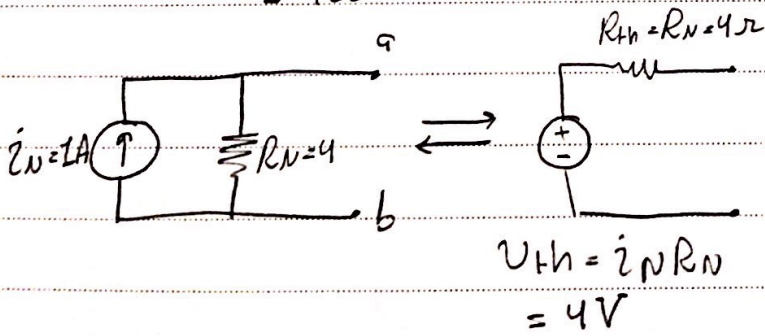 a
Rth = RN = 4Ω
iN = 1A
RN = 4
+
-
b
Vth = iN RN
= 4V